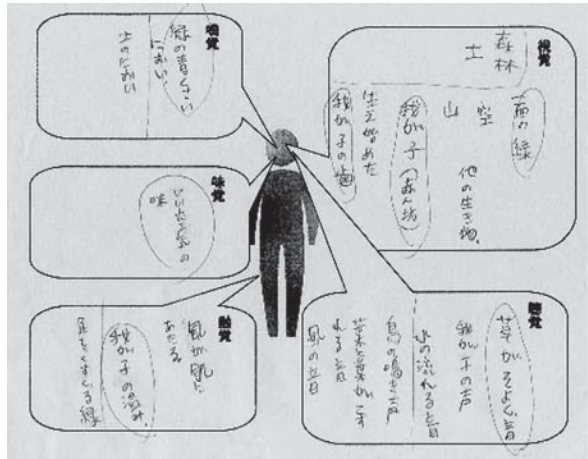 嗅覚
緑の青くさい
におい
土のにおい
視覚
森林
土
苗の緑
空
山
他の生き物
我が子(赤ん坊)
生え始めた
我が子の歯
味覚
いい空気の
味
触覚
風が肌に
あたる
我が子の温み
足をくすぐる緑
聴覚
草がそよぐ音
我が子の声
水の流れる音
鳥の鳴き声
葉と葉がこす
れる音
風の音